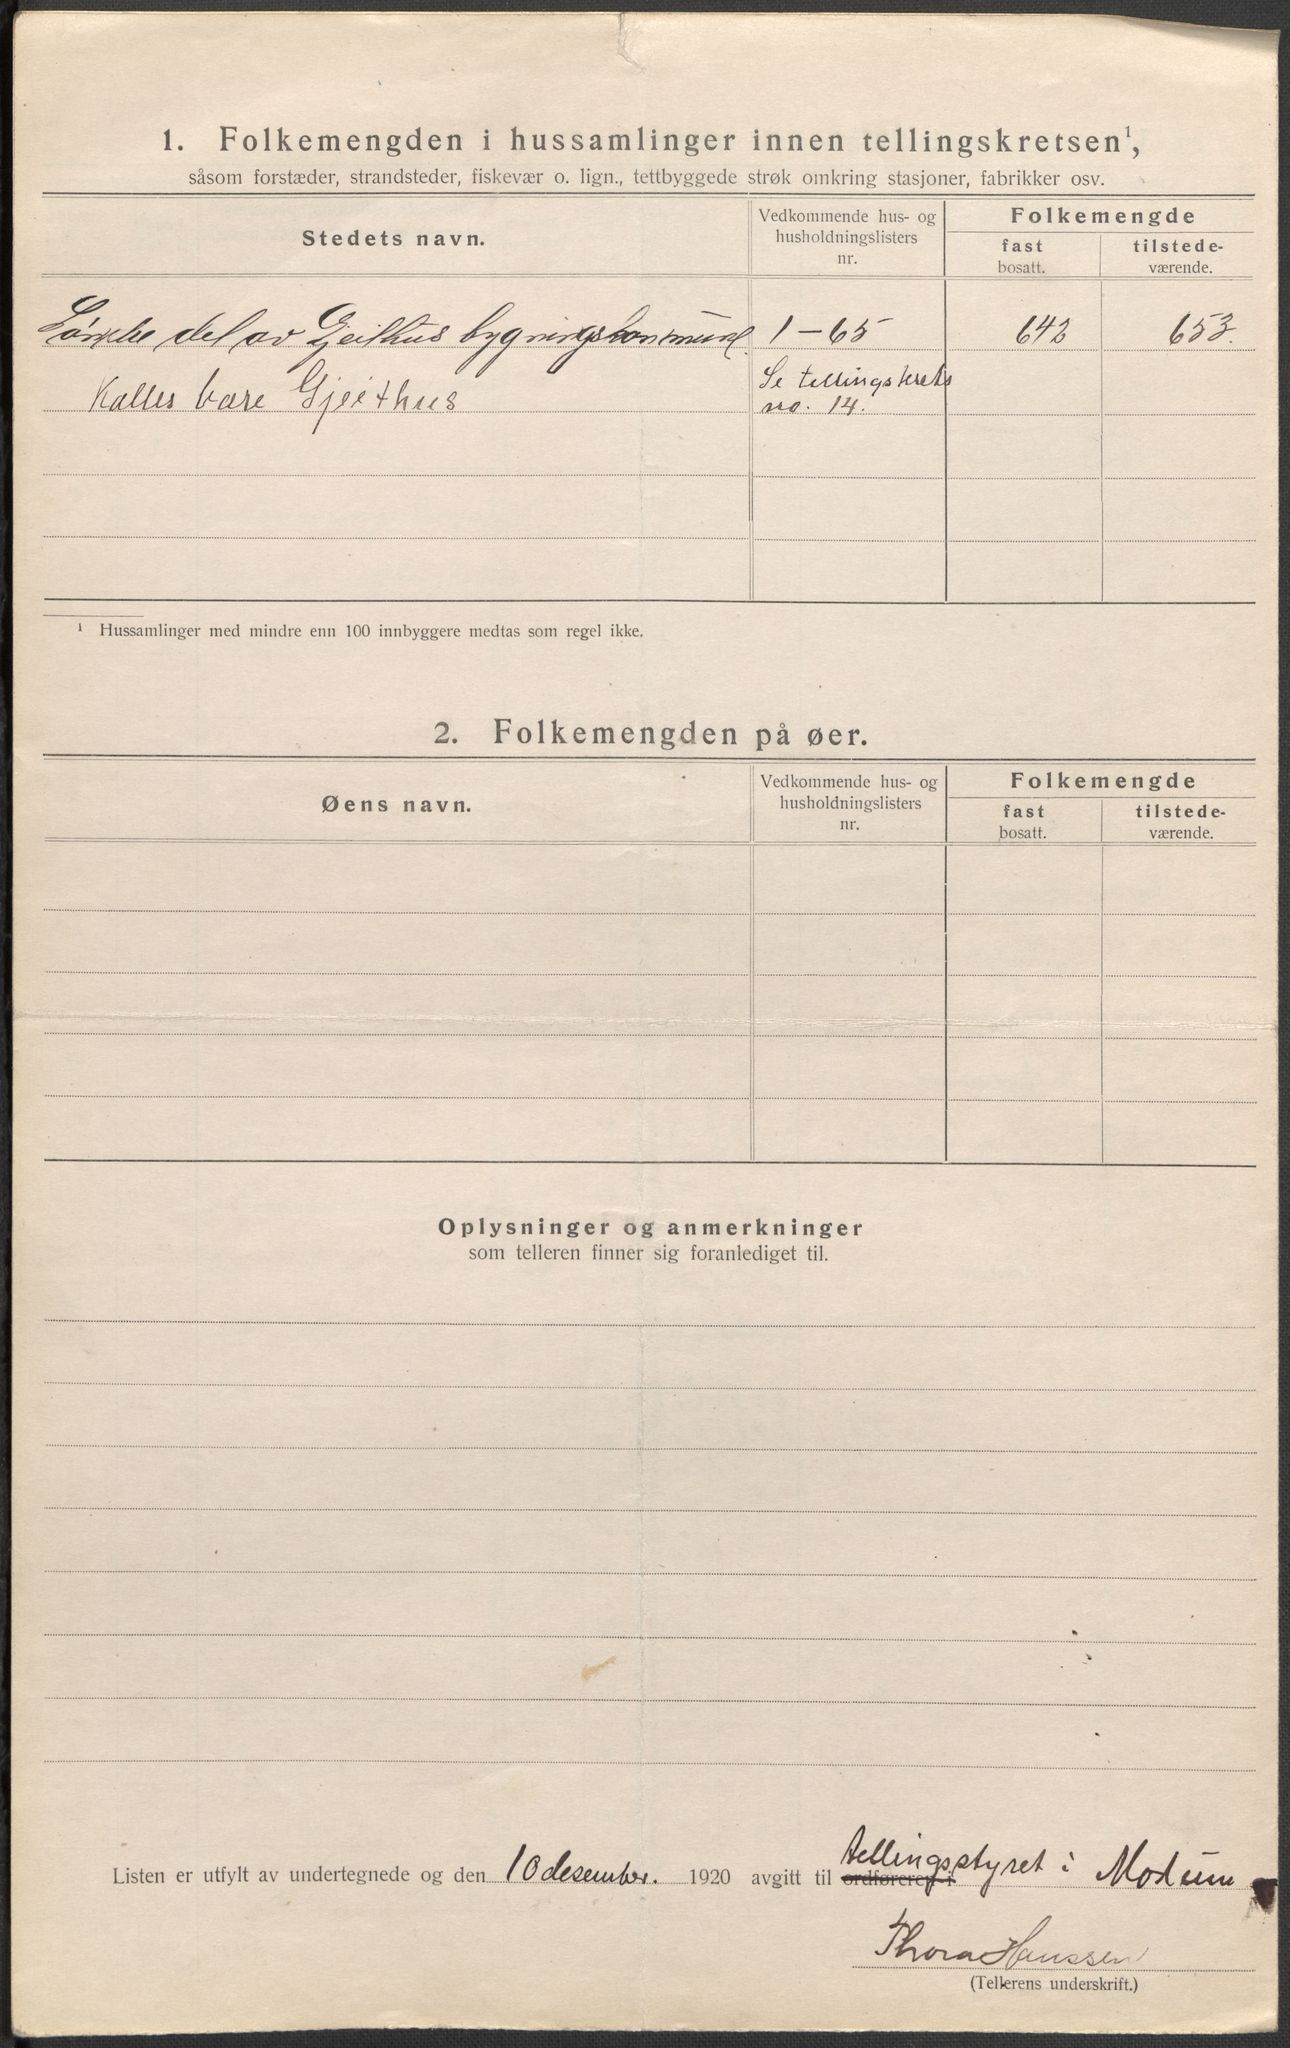 1. Folkemengden i hussamlinger innen tellingskretsen¹,
såsom forstæder, strandsteder, fiskevær o. lign., tettbyggede strøk omkring stasjoner, fabrikker osv.
Stedets navn.
Vedkommende hus- og
husholdningslisters
nr.
Folkemengde
fast
bosatt.
tilstede-
værende.
del av Geithus 1-65 642 653.
Kalles bare Gjeithus
Se tellingskrets
no. 14.
¹ Hussamlinger med mindre enn 100 innbyggere medtas som regel ikke.
2. Folkemengden på øer.
Øens navn.
Vedkommende hus- og
husholdningslisters
nr.
Folkemengde
fast
bosatt.
tilstede-
værende.
Oplysninger og anmerkninger
som telleren finner sig foranlediget til.
Listen er utfylt av undertegnede og den 10 desember. 1920 avgitt til ordføreren i tellingsstyret i Modum
Thora Hanssen
(Tellerens underskrift.)